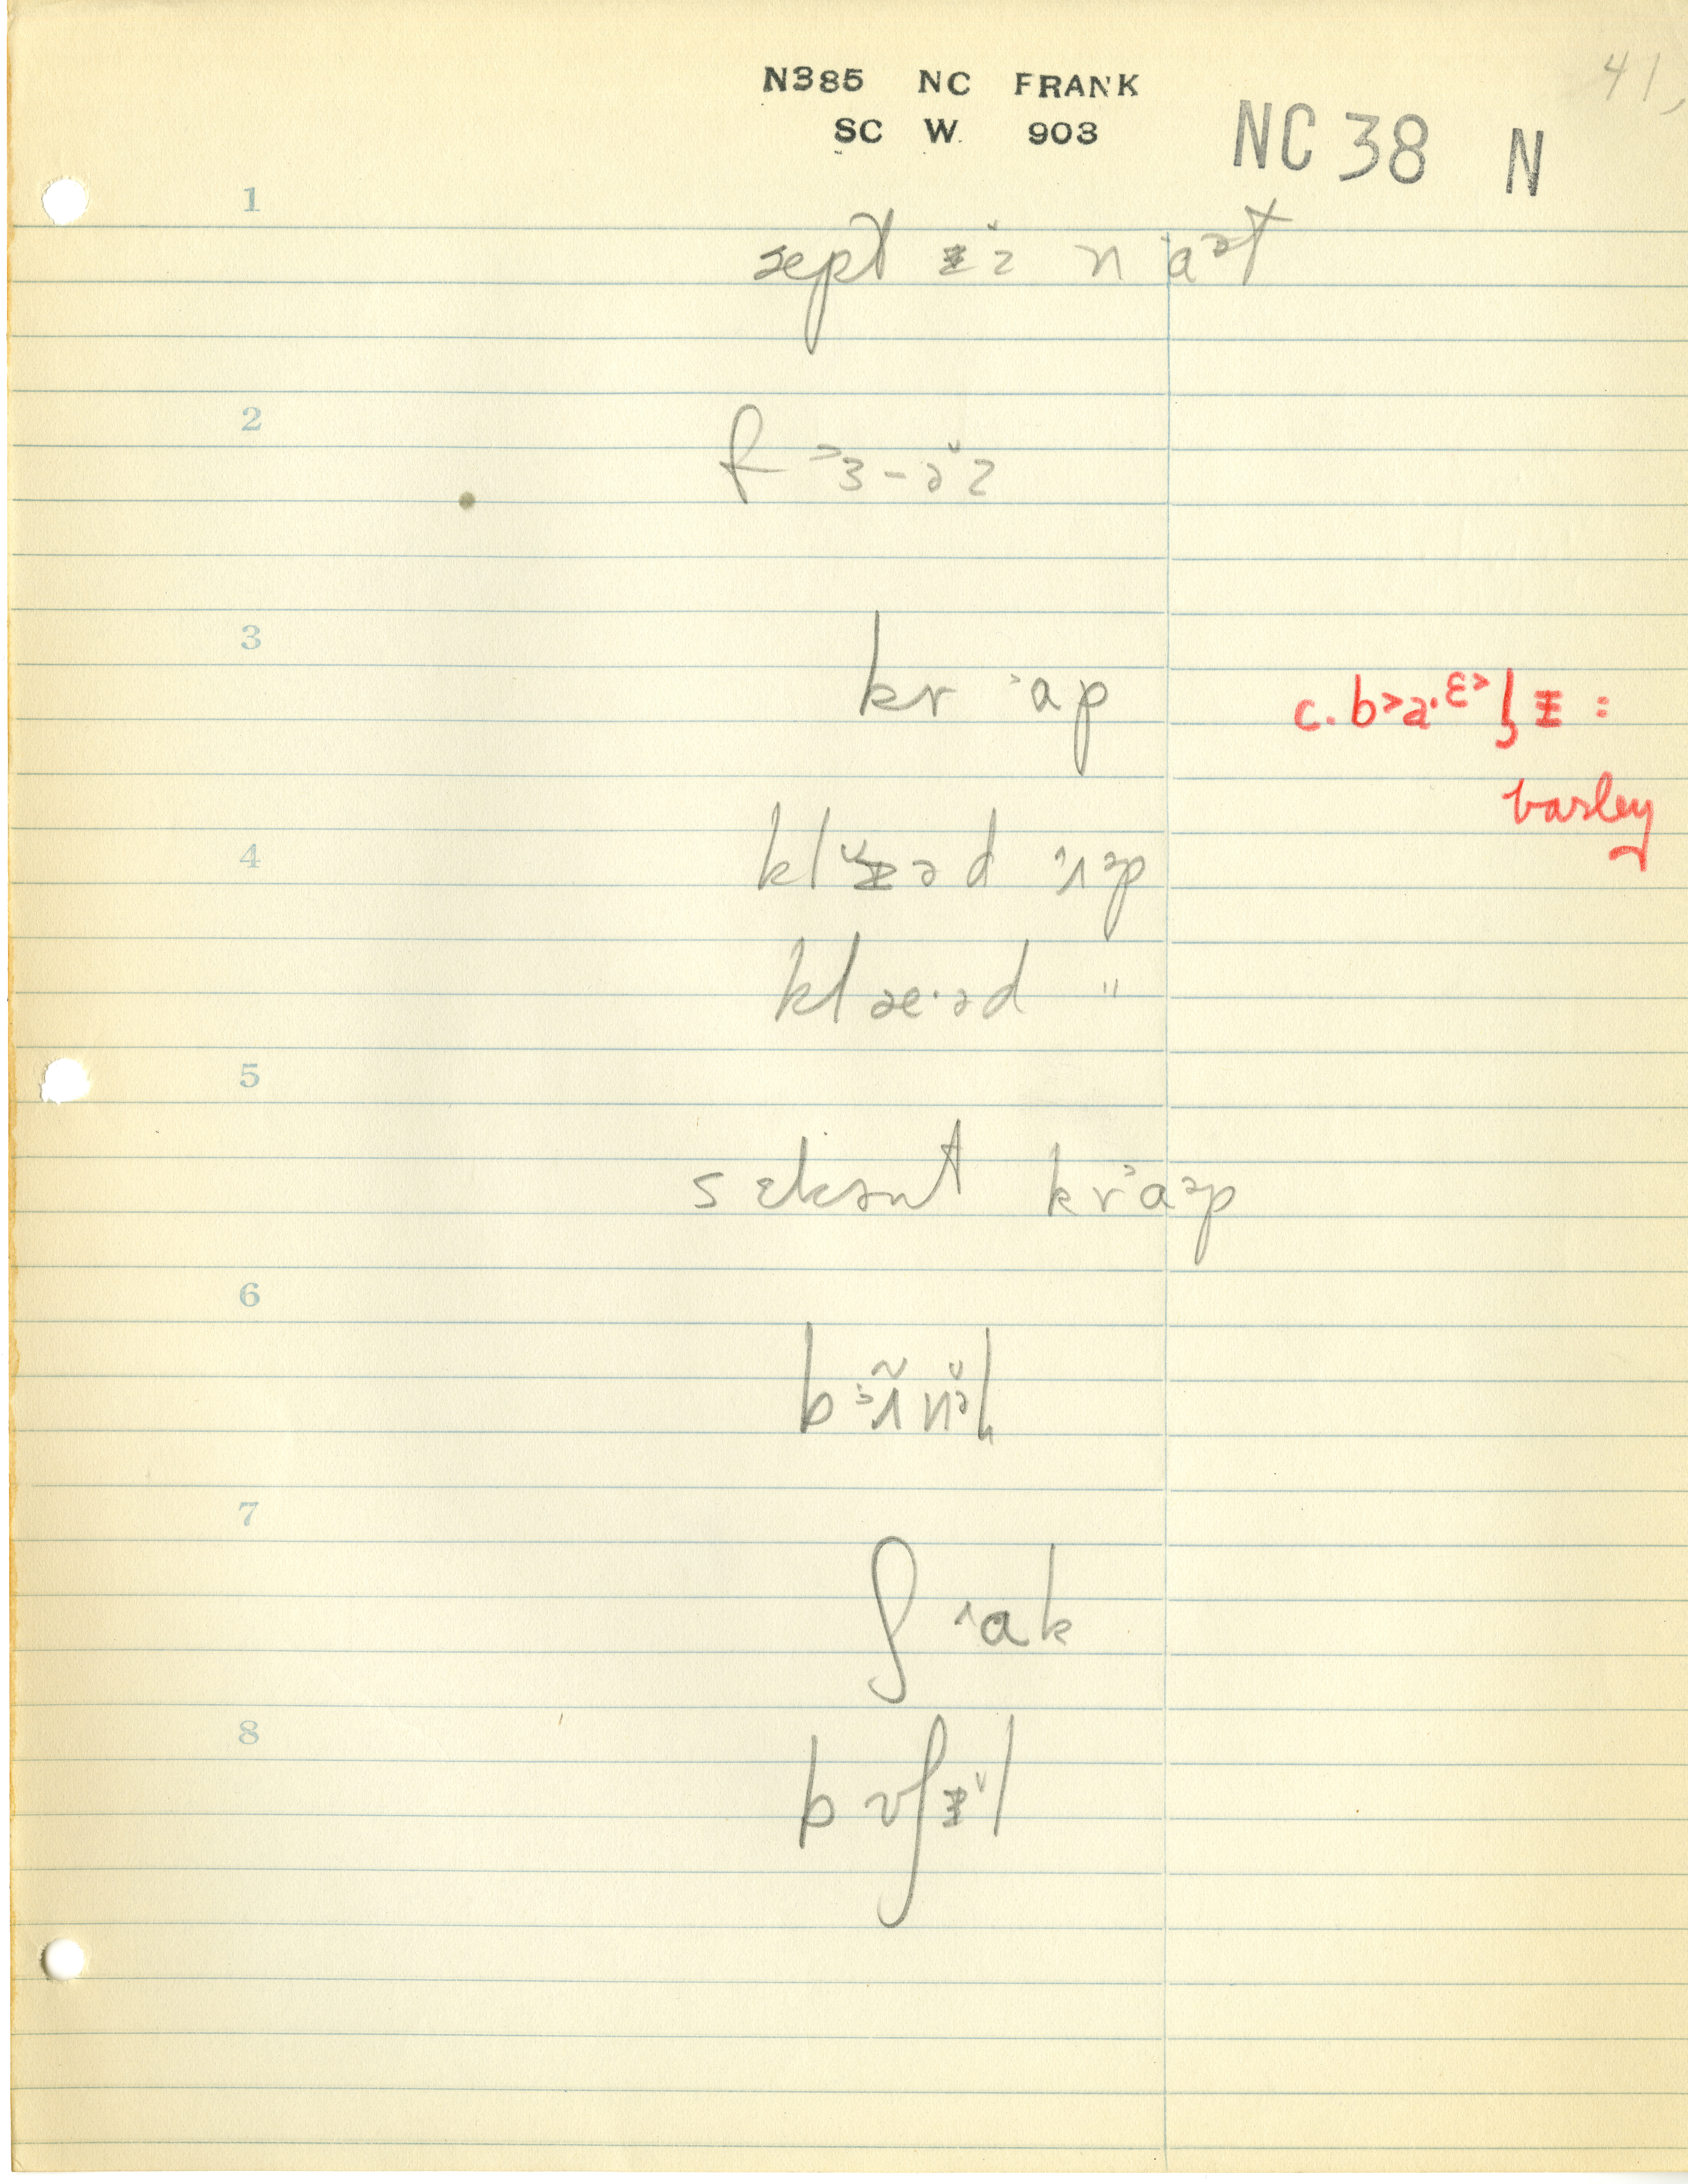 N385 NC FRANK
41,
SC W. 903
NC 38 N
1
sept ɪ̵̆z n ˈaᵊt
2
f ᵓɜ-ə̆z
3
kr ˃ap
c. b˃a·ᵋ˃lɪ̵ :
barley
4
klɪ̵̆əd ˄ʌᵊp
klæ·əd "
5
sekənt kr˃aᵊp
6
7
ʃ ˄ak
8
bʊʃɪ̵̆l